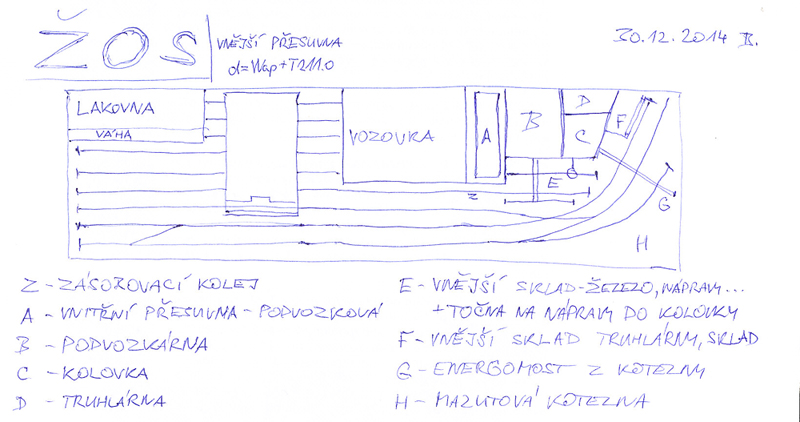 ŽOS
VNĚJŠÍ PŘESUVNA
d=Wap+T211.0
30.12.2014 II.
LAKOVNA
VÁHA
VOZOVKA
A
B
D
C
F
E
Z
G
H
Z - ZÁSOBOVACÍ KOLEJ
A - VNITŘNÍ PŘESUVNA - PODVOZKOVÁ
B - PODVOZKÁRNA
C - KOLOVKA
D - TRUHLÁRNA
E - VNĚJŠÍ SKLAD-ŽELEZO, NÁPRAVY...
+ TOČNA NA NÁPRAVY DO KOLOVKY
F - VNĚJŠÍ SKLAD TRUHLÁRNY, SKLAD
G - ENERGOMOST Z KOTELNY
H - MAZUTOVÁ KOTELNA